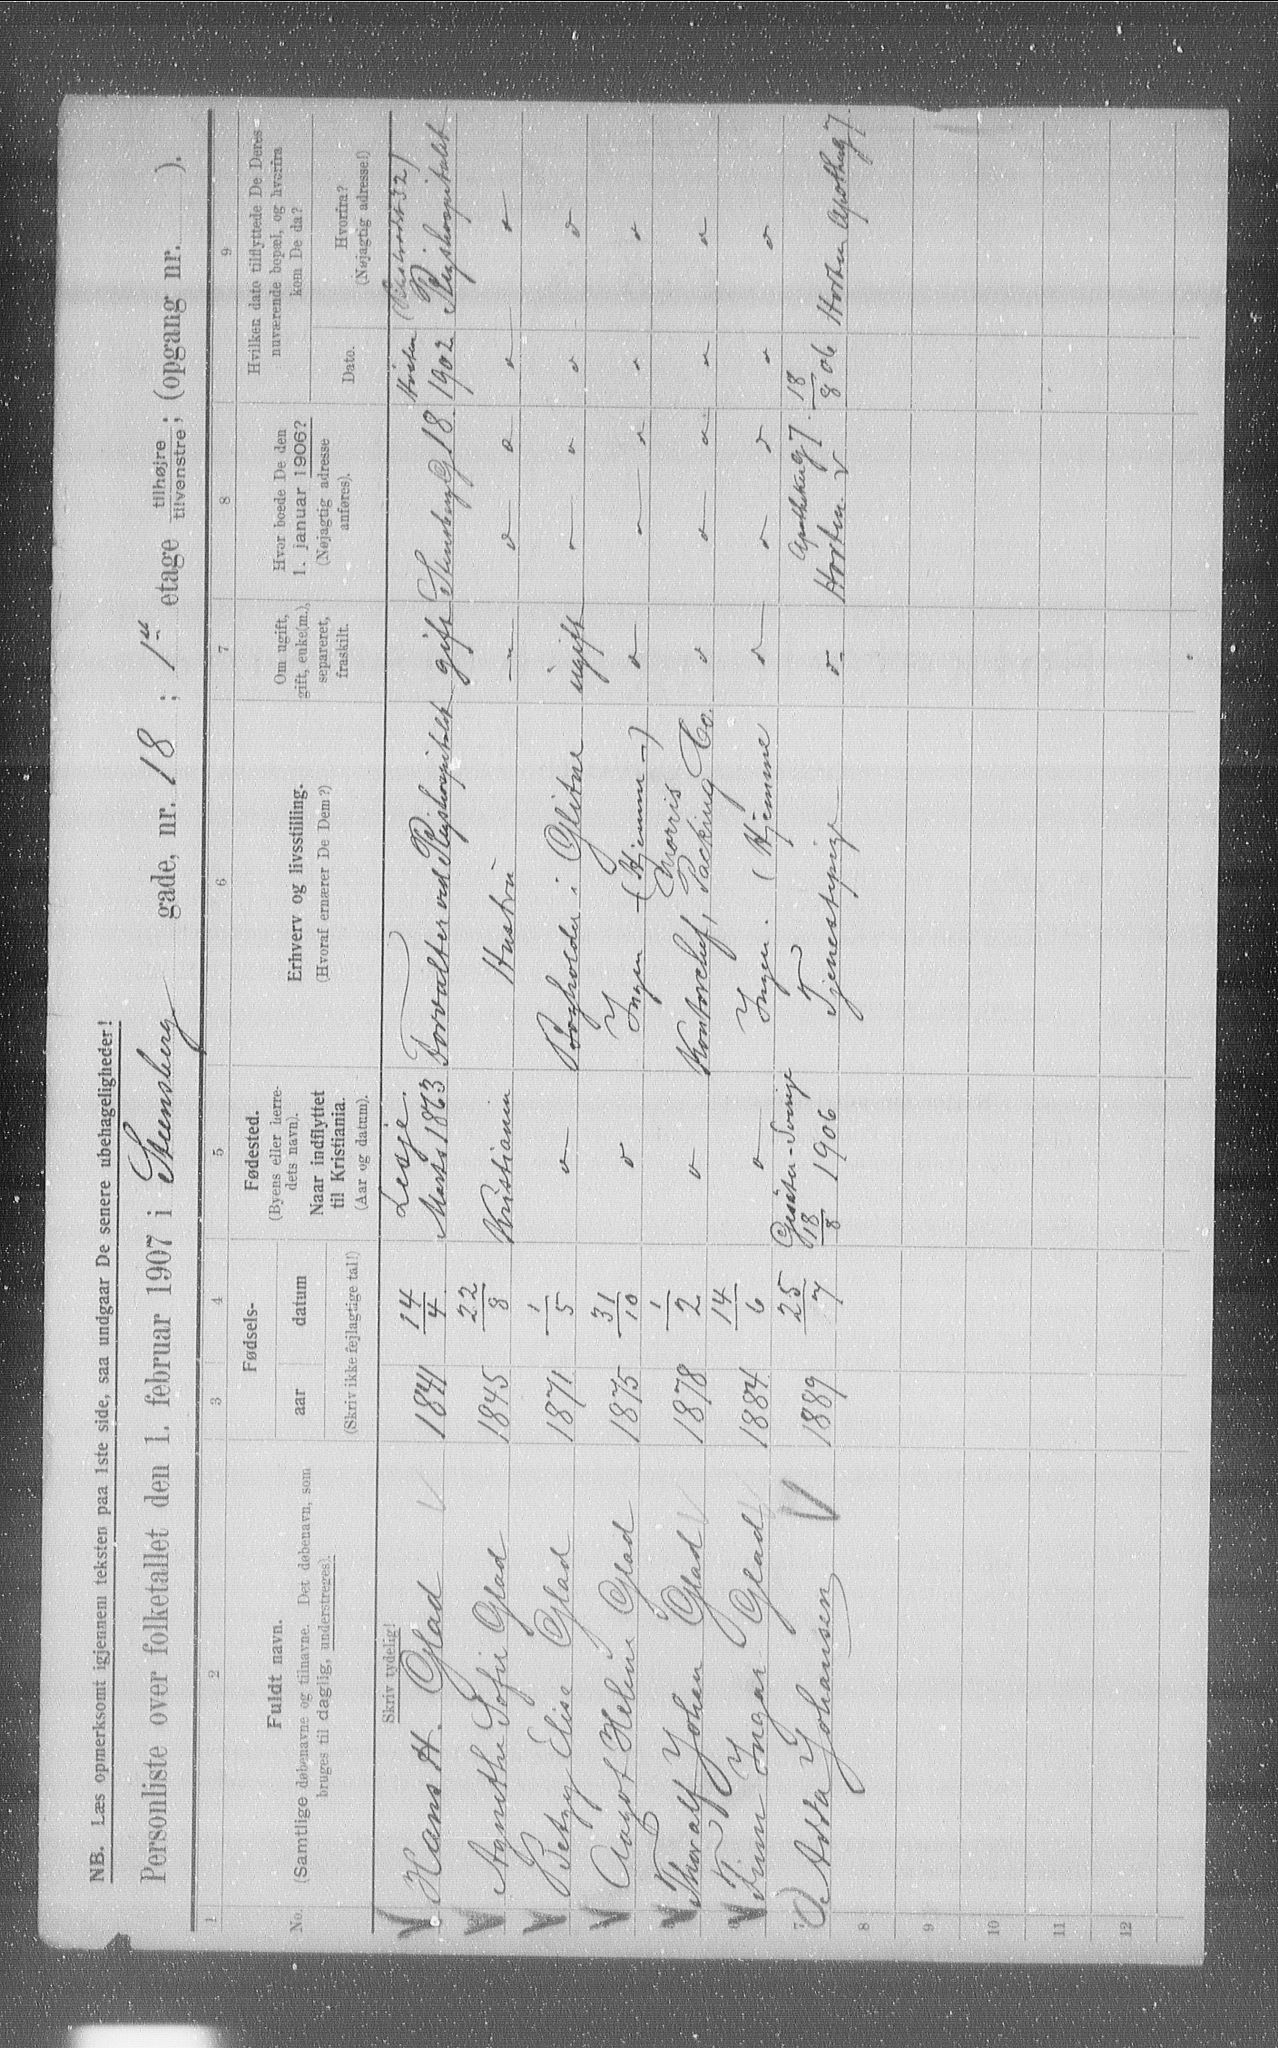 NB. Læs opmerksomt igjennem teksten paa 1ste side, saa undgaar De senere ubehageligheder!
Personliste over folketallet den 1. februar 1907 i Steensberg gade, nr. 18 ; 1ste etage tilhøjre tilvenstre ; (opgang nr. ).
1 2 3 4 5 6 7 8 9
No.
Fuldt navn.
(Samtlige døbenavne og tilnavne. Det døbenavn, som
bruges til daglig, understreges).
Skriv tydelig!
Fødsels-
aar datum
(Skriv ikke fejlagtige tal!)
Fødested.
(Byens eller herre-
dets navn).
Naar indflyttet
til Kristiania.
(Aar og datum).
Erhverv og livsstilling.
(Hvoraf ernærer De Dem?)
Om ugift,
gift, enke(m.),
separeret,
fraskilt.
Hvor boede De den
1. januar 1906?
(Nøjagtig adresse
anføres).
Hvilken dato tilflyttede De Deres
nuværende bopæl, og hvorfra
kom De da?
Dato.
Hvorfra?
(Nøjagtig adresse!)
Hans H. Glad 1841 14/4 Lesje. Marts 1863 Forvalter ved Rigshospitalet gift Stensbergg 18. 1902 Rigshospitalet
Agnethe Sofie Glad 1845 22/8 Kristiania Hustru " " " " "
Betzy Elise Glad 1871 1/5 " Bogholder i Glitne ugift " " " "
Aagot Helene Glad 1875 31/10 " Ingen (Hjemme) " " " " "
Thoralf Johan Glad 1878 1/2 " Kontorchef, Morris Packing Co. " " " " "
Finn Ingar Glad 1884 14/6 " Ingen. (Hjemme " " " " "
7 Asta Johansen 1889 25/7 Sverige 18/8 1906 Tjenestepige " Apothekerg 7. Horten 18/8 06 Horten Apothkg 7.
8
9
10
11
12